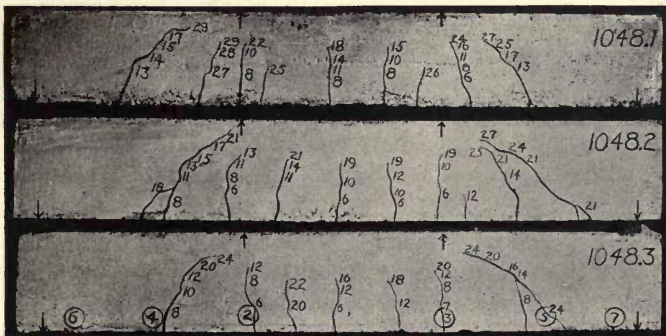 29 17 15 14 13 29 28 27 22 10 8 25 18 14 11 8 15 10 8 26 24 16 11 8 6 27 25 17 13 1048.1
21 17 15 13 11 18 8 13 11 8 6 21 14 11 19 10 6 19 12 10 6 19 10 6 12 27 25 24 21 21 14 21 1048.2
24 20 12 10 8 12 8 6 22 20 16 12 6 18 12 20 12 8 7 24 20 16 14 8 24 1048.3
6 4 2 3 5 7